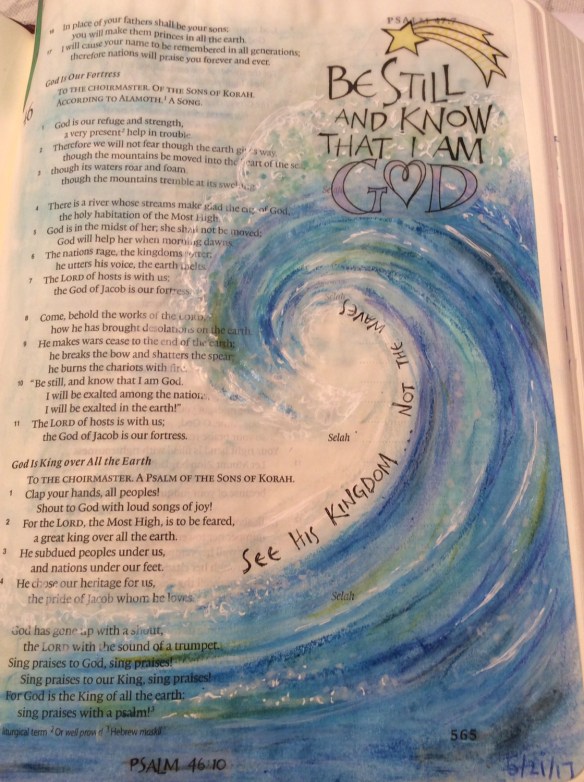 PSALM 47:7
16 In place of your fathers shall be your sons;
you will make them princes in all the earth.
17 I will cause your name to be remembered in all generations;
therefore nations will praise you forever and ever.
God Is Our Fortress
TO THE CHOIRMASTER. OF THE SONS OF KORAH.
ACCORDING TO ALAMOTH.1 A SONG.
1 God is our refuge and strength,
a very present2 help in trouble.
2 Therefore we will not fear though the earth gives way,
though the mountains be moved into the heart of the sea,
3 though its waters roar and foam,
though the mountains tremble at its swelling.
4 There is a river whose streams make glad the city of God,
the holy habitation of the Most High.
5 God is in the midst of her; she shall not be moved;
God will help her when morning dawns.
6 The nations rage, the kingdoms totter;
he utters his voice, the earth melts.
7 The LORD of hosts is with us;
the God of Jacob is our fortress.
8 Come, behold the works of the LORD,
how he has brought desolations on the earth.
9 He makes wars cease to the end of the earth;
he breaks the bow and shatters the spear;
he burns the chariots with fire.
10 "Be still, and know that I am God.
I will be exalted among the nations,
I will be exalted in the earth!"
11 The LORD of hosts is with us;
the God of Jacob is our fortress. Selah
God Is King over All the Earth
TO THE CHOIRMASTER. A PSALM OF THE SONS OF KORAH.
1 Clap your hands, all peoples!
Shout to God with loud songs of joy!
2 For the LORD, the Most High, is to be feared,
a great king over all the earth.
3 He subdued peoples under us,
and nations under our feet.
4 He chose our heritage for us,
the pride of Jacob whom he loves. Selah
God has gone up with a shout,
the LORD with the sound of a trumpet.
Sing praises to God, sing praises!
Sing praises to our King, sing praises!
For God is the King of all the earth;
sing praises with a psalm!3
liturgical term 2 Or well proved 3 Hebrew maskil
BE STILL
AND KNOW
THAT I AM
GOD
SEE HIS KINGDOM... NOT THE WAVES
565
PSALM 46:10
5/21/17